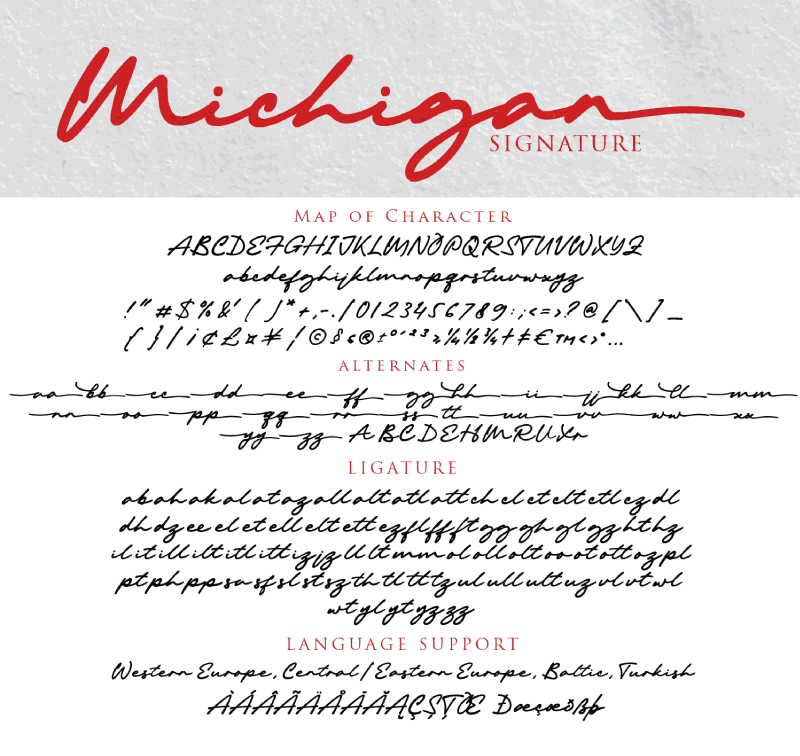 Michigan
SIGNATURE
MAP OF CHARACTER
ABCDEFGHIJKLMNOPQRSTUVWXYZ
abcdefghijklmnopqrstuvwxyz
!"#$%&'()*+,-./0123456789:;<=>?@[\]_
{}|¡¢£¤¥¦©®±°¹²³¼½¾†‡€™‹›•…
ALTERNATES
aa bb cc dd ee ff gg hh ii jj kk ll mm
nn oo pp qq rr ss tt uu vv ww xx
yy zz A B C D E H M R U X r
LIGATURE
ab ah ak al at az all alt atl att ch el et elt etl ez dl
dh dz ee el et ell elt ett ez fl ff fft gg gh gl gz ht hz
il it ill ilt itl itt iz jz ll lt mm ol oll olt oo ot ott oz pl
pt ph pp sa sf sl st sz th tl tt tz ul ull ult uz vl vt wl
wt yl yt yz zz
LANGUAGE SUPPORT
Western Europe, Central/Eastern Europe, Baltic, Turkish